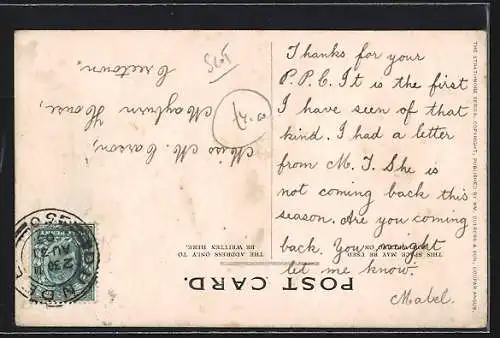 Thanks for your
P.P.C. It is the first
I have seen of that
kind. I had a letter
from M. J. She is
not coming back this
season. Are you coming
back. You might
let me know.
Mabel.
Miss M. Carson,
Mayburn House,
Creetown.
POST CARD.
THE ADDRESS ONLY TO
BE WRITTEN HERE.
THIS SPACE MAY BE USED
THE STRATHMORE SERIES. COPYRIGHT. PUBLISHED BY WM. CULROSS & SON, COUPAR ANGUS.